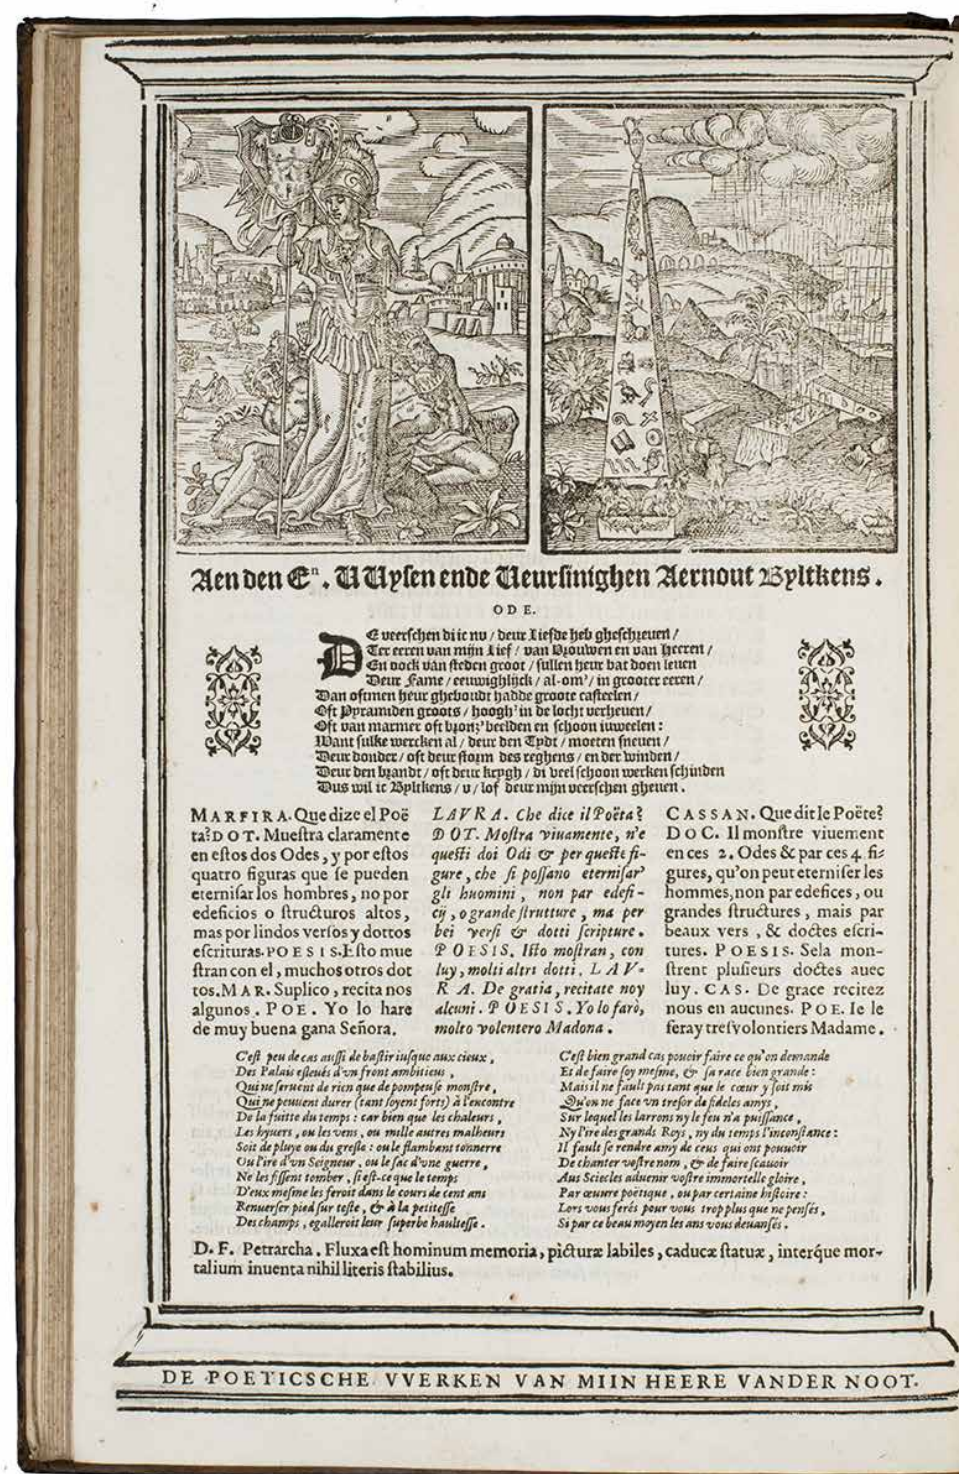 Aen den Eⁿ. VVysen ende Veursinighen Aernout Byltkens.
ODE.
DE veerschen di ic nu / deur Liefde heb gheschreuen /
Ter eeren van mijn Lief / van Vrouwen en van Heeren /
En oock van steden groot / sullen heur bat doen leuen
Deur Fame / eeuwighlijck / al-om' / in grooter eeren /
Dan oftmen heur gheboudt hadde groote casteelen /
Oft Pyramiden groots / hoogh' in de locht verheuen /
Oft van marmer oft bronz' beelden en schoon iuweelen :
Want sulke wercken al / deur den Tydt / moeten sneuen /
Deur donder / oft deur storm des reghens / en der winden /
Deur den brandt / oft deur krygh / di veel schoon werken schinden
Dus wil ic Byltkens / v / lof deur mijn veerschen gheuen.
MARFIRA. Que dize el Poë
ta? DOT. Muestra claramente
en estos dos Odes, y por estos
quatro figuras que se pueden
eternisar los hombres, no por
edeficios o structuros altos,
mas por lindos versos y dottos
escrituras. POESIS. Esto mue
stran con el, muchos otros dot
tos. MAR. Suplico, recita nos
algunos. POE. Yo lo hare
de muy buena gana Señora.
LAVRA. Che dice il Poëta?
DOT. Mostra viuamente, n'e
questi doi Odi & per queste fi-
gure, che si possano eternisar'
gli huomini, non par edefi-
cij, o grande strutture, ma per
bei versi & dotti scripture.
POESIS. Isto mostran, con
luy, molti altri dotti. LAV-
RA. De gratia, recitate noy
alcuni. POESIS. Yo lo farò,
molto volentero Madona.
CASSAN. Que dit le Poëte?
DOC. Il monstre viuement
en ces 2. Odes & par ces 4. fi-
gures, qu'on peut eterniser les
hommes, non par edefices, ou
grandes structures, mais par
beaux vers, & doctes escri-
tures. POESIS. Sela mon-
strent plusieurs doctes auec
luy. CAS. De grace recitez
nous en aucunes. POE. Ie le
feray tresvolontiers Madame.
C'est peu de cas aussi de bastir iusque aux cieux,
Des Palais esleués d'vn front ambitieus,
Qui ne seruent de rien que de pompeuse monstre,
Qui ne peuuent durer (tant soyent forts) à l'encontre
De la fuitte du temps : car bien que les chaleurs,
Les hyuers, ou les vens, ou mille autres malheurs
Soit de pluye ou du gresle : ou le flambant tonnerre
Ou l'ire d'vn Seigneur, ou le sac d'vne guerre,
Ne les fissent tomber, si est-ce que le temps
D'eux mesme les feroit dans le cours de cent ans
Renuerser pied sur teste, & à la petitesse
Des champs, egalleroit leur superbe haultesse.
C'est bien grand cas pouoir faire ce qu'on demande
Et de faire soy mesme, & sa race bien grande :
Mais il ne fault pas tant que le cœur y soit mis
Qu'on ne face vn tresor de fideles amys,
Sur lequel les larrons ny le feu n'a puissance,
Ny l'ire des grands Roys, ny du temps l'inconstance :
Il fault se rendre amy de ceus qui ont pouuoir
De chanter vostre nom, & de faire scauoir
Aus Sciecles aduenir vostre immortelle gloire,
Par œuure poëtique, ou par certaine histoire :
Lors vous ferés pour vous trop plus que ne pensés,
Si par ce beau moyen les ans vous deuansés.
D. F. Petrarcha. Fluxa est hominum memoria, picturæ labiles, caducæ statuæ, interque mor-
talium inuenta nihil literis stabilius.
DE POETICSCHE VVERKEN VAN MIIN HEERE VANDER NOOT.